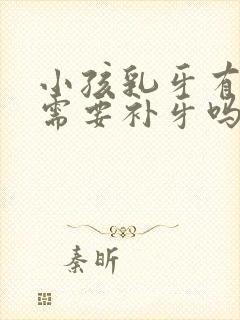 小孩乳牙有
需要补牙吗
秦昕